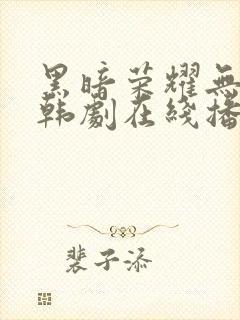 黑暗荣耀無
韩劇在綫播
裴子添